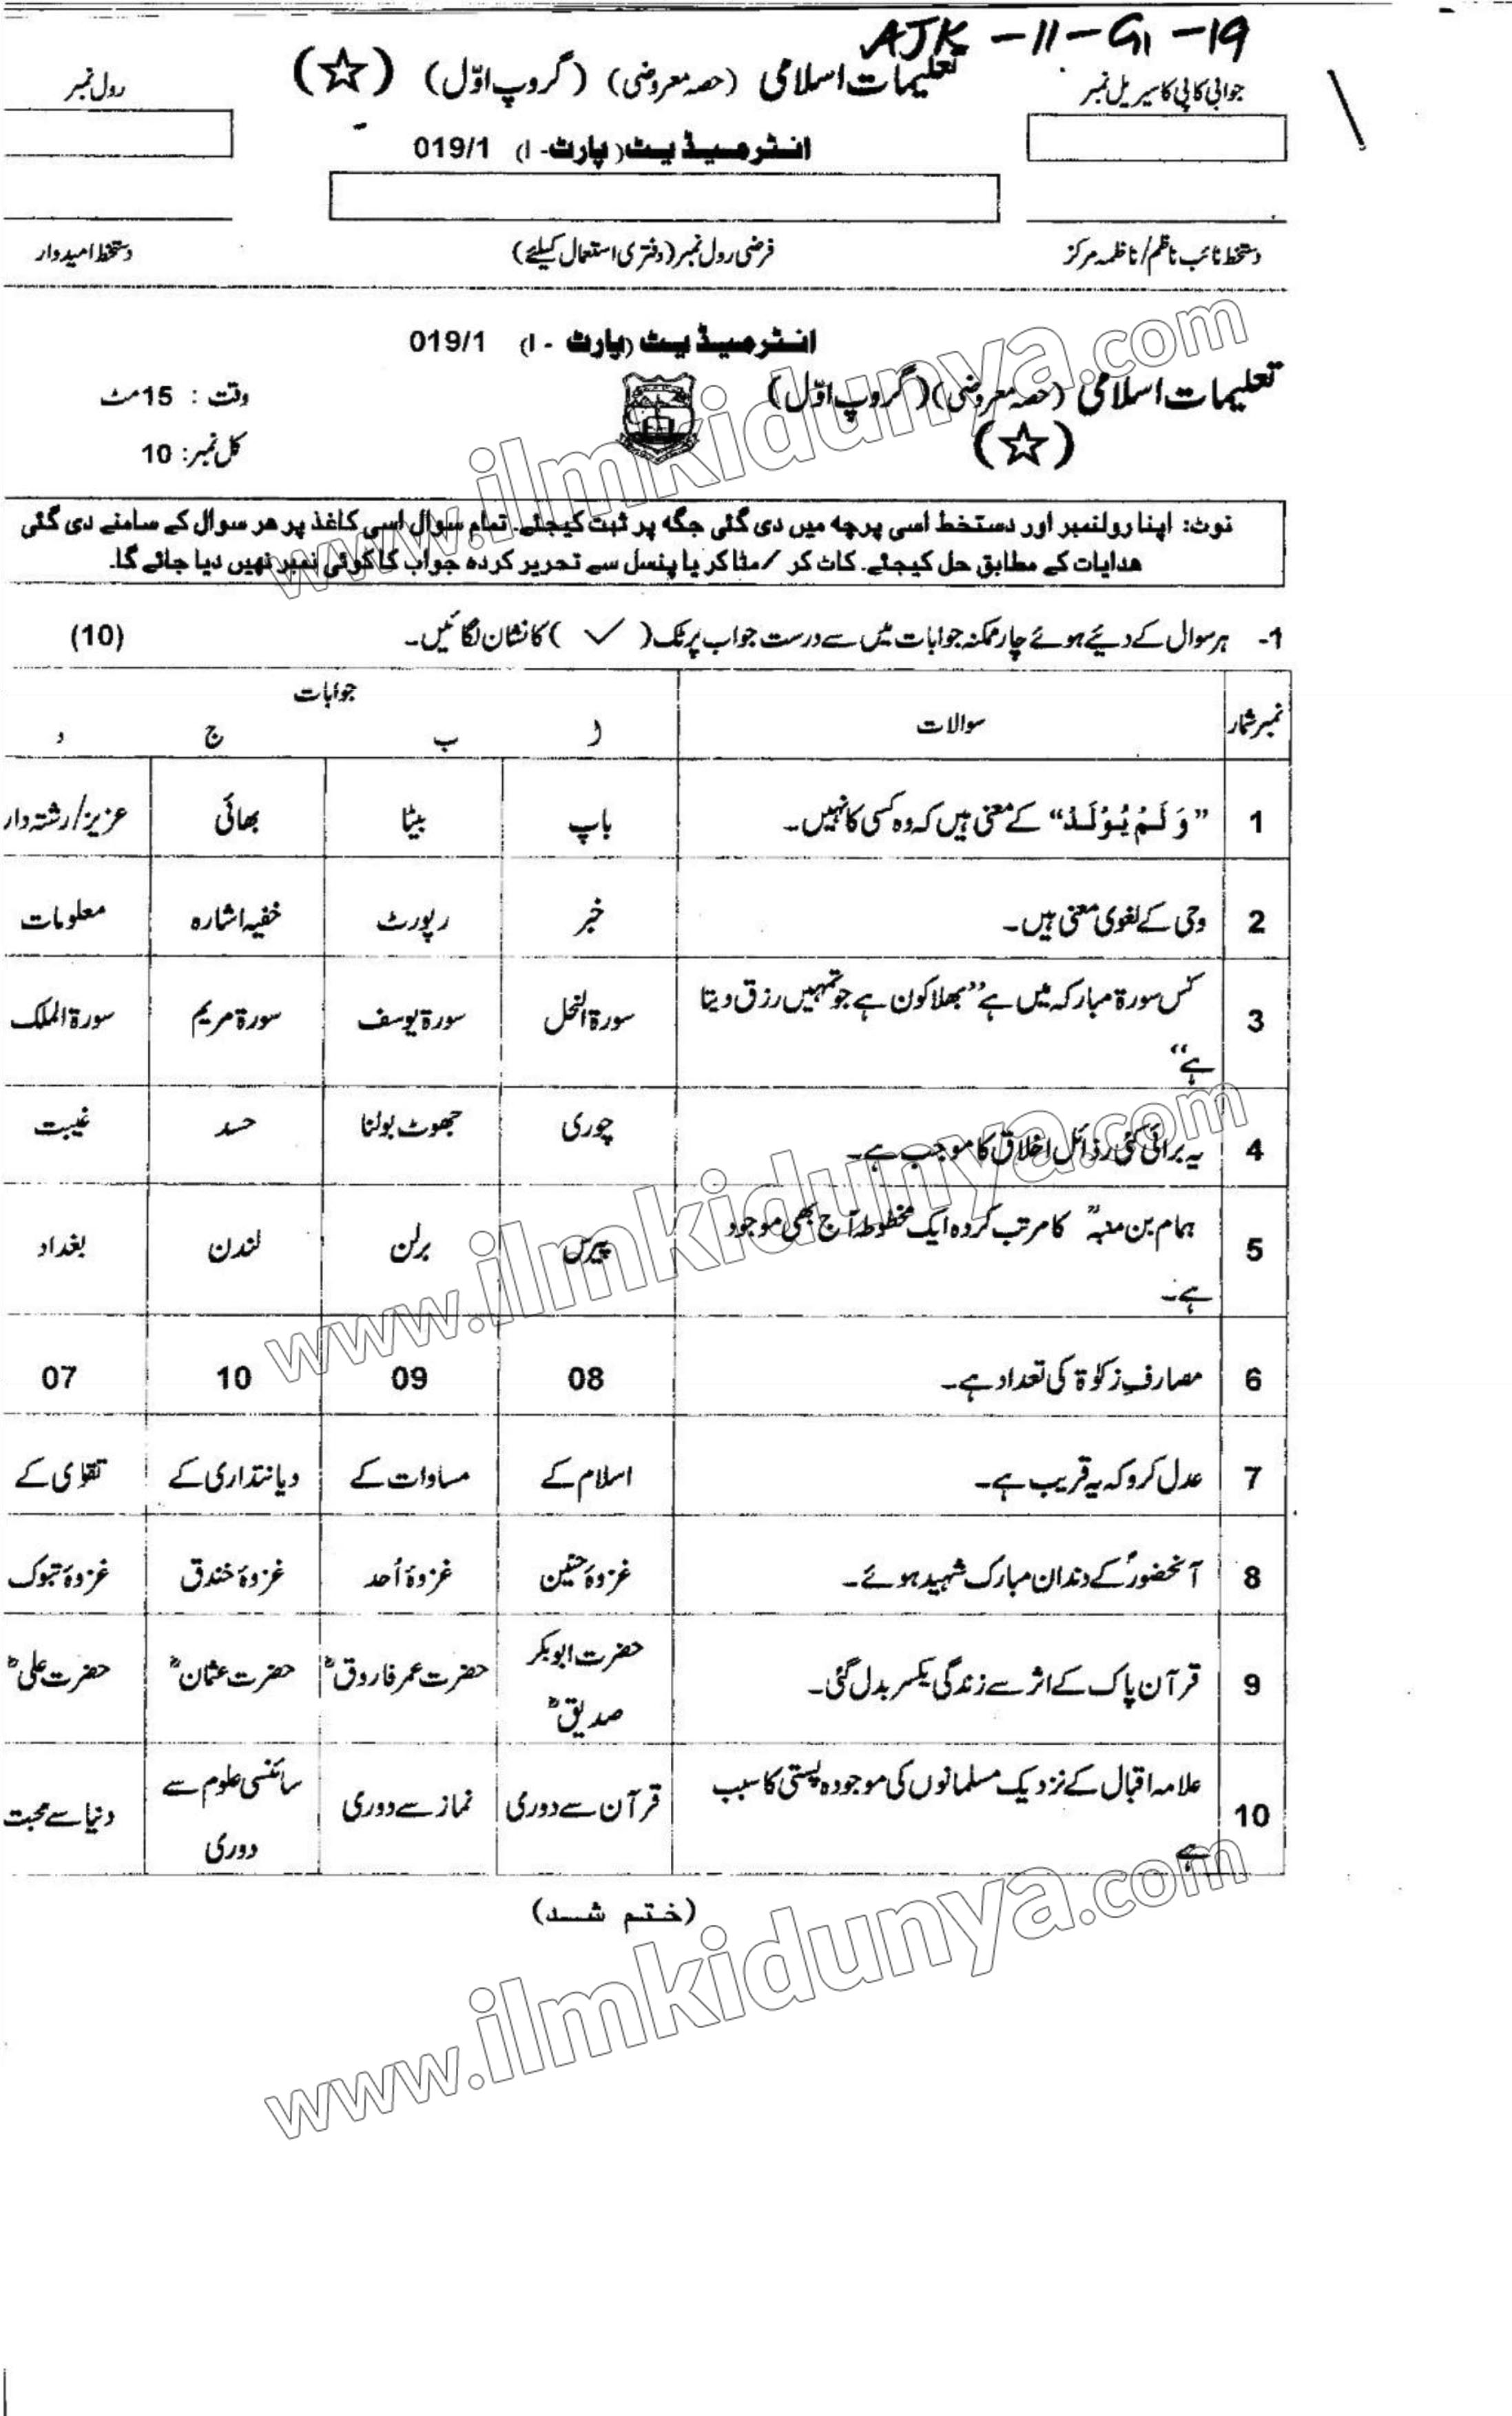 AJK-11-G1-19
تعلیمات اسلامی (حصہ معروضی) (گروپ اوّل) (☆)
جوابی کاپی کا سیریل نمبر
رول نمبر
انٹرمیڈیٹ (پارٹ - I) 019/1
دستخط نائب ناظم/ناظمہ مرکز
فرضی رول نمبر (دفتری استعمال کیلئے)
دستخط امیدوار
انٹرمیڈیٹ (پارٹ - I) 019/1
تعلیمات اسلامی (حصہ معروضی) (گروپ اوّل)
وقت : 15 منٹ
(☆)
کل نمبر: 10
نوٹ: اپنا رولنمبر اور دستخط اسی پرچہ میں دی گئی جگہ پر ثبت کیجئے. تمام سوال اسی کاغذ پر ہر سوال کے سامنے دی گئی
ہدایات کے مطابق حل کیجئے. کاٹ کر /مٹا کر یا پنسل سے تحریر کردہ جواب کا کوئی نمبر نہیں دیا جائے گا.
1- ہر سوال کے دئیے ہوئے چار ممکنہ جوابات میں سے درست جواب پر ٹک ( ✓ ) کا نشان لگائیں۔ (10)
نمبر شمار سوالات جوابات
ا ب ج د
1 ”وَلَمْ يُوْلَدْ“ کے معنی ہیں کہ وہ کسی کا نہیں۔ باپ بیٹا بھائی عزیز/رشتہ دار
2 وحی کے لغوی معنی ہیں۔ خبر رپورٹ خفیہ اشارہ معلومات
3 کس سورۃ مبارکہ میں ہے ”بھلا کون ہے جو تمہیں رزق دیتا
ہے“ سورۃ النحل سورۃ یوسف سورۃ مریم سورۃ الملک
4 یہ برائی کئی رذائل اخلاق کا موجب ہے۔ چوری جھوٹ بولنا حسد غیبت
5 ہمام بن منبہؒ کا مرتب کردہ ایک مخطوطہ آج بھی موجود
ہے۔ پیرس برلن لندن بغداد
6 مصارفِ زکوٰۃ کی تعداد ہے۔ 08 09 10 07
7 عدل کرو کہ یہ قریب ہے۔ اسلام کے مساوات کے دیانتداری کے تقوٰی کے
8 آنحضورؐ کے دندان مبارک شہید ہوئے۔ غزوۂ حنین غزوۂ اُحد غزوۂ خندق غزوۂ تبوک
9 قرآن پاک کے اثر سے زندگی یکسر بدل گئی۔ حضرت ابوبکر صدیقؓ حضرت عمر فاروقؓ حضرت عثمانؓ حضرت علیؓ
10 علامہ اقبال کے نزدیک مسلمانوں کی موجودہ پستی کا سبب
ہے قرآن سے دوری نماز سے دوری سائنسی علوم سے دوری دنیا سے محبت
(ختم شد)
www.ilmkidunya.com
www.ilmkidunya.com
www.ilmkidunya.com